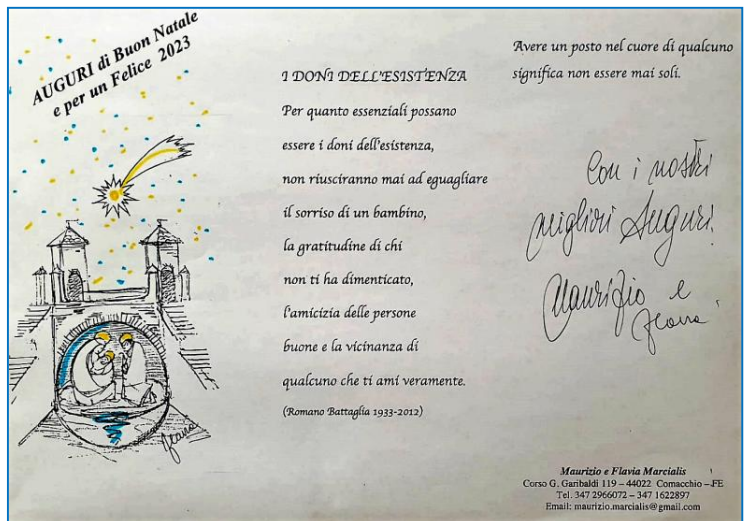 AUGURI di Buon Natale
e per un Felice 2023
Flavia
I DONI DELL'ESISTENZA
Per quanto essenziali possano
essere i doni dell'esistenza,
non riusciranno mai ad eguagliare
il sorriso di un bambino,
la gratitudine di chi
non ti ha dimenticato,
l'amicizia delle persone
buone e la vicinanza di
qualcuno che ti ami veramente.
(Romano Battaglia 1933-2012)
Avere un posto nel cuore di qualcuno
significa non essere mai soli.
Con i nostri
migliori Auguri.
Maurizio e
Flavia
Maurizio e Flavia Marcialis
Corso G. Garibaldi 119 – 44022 Comacchio – FE
Tel. 347 2966072 – 347 1622897
Email: maurizio.marcialis@gmail.com